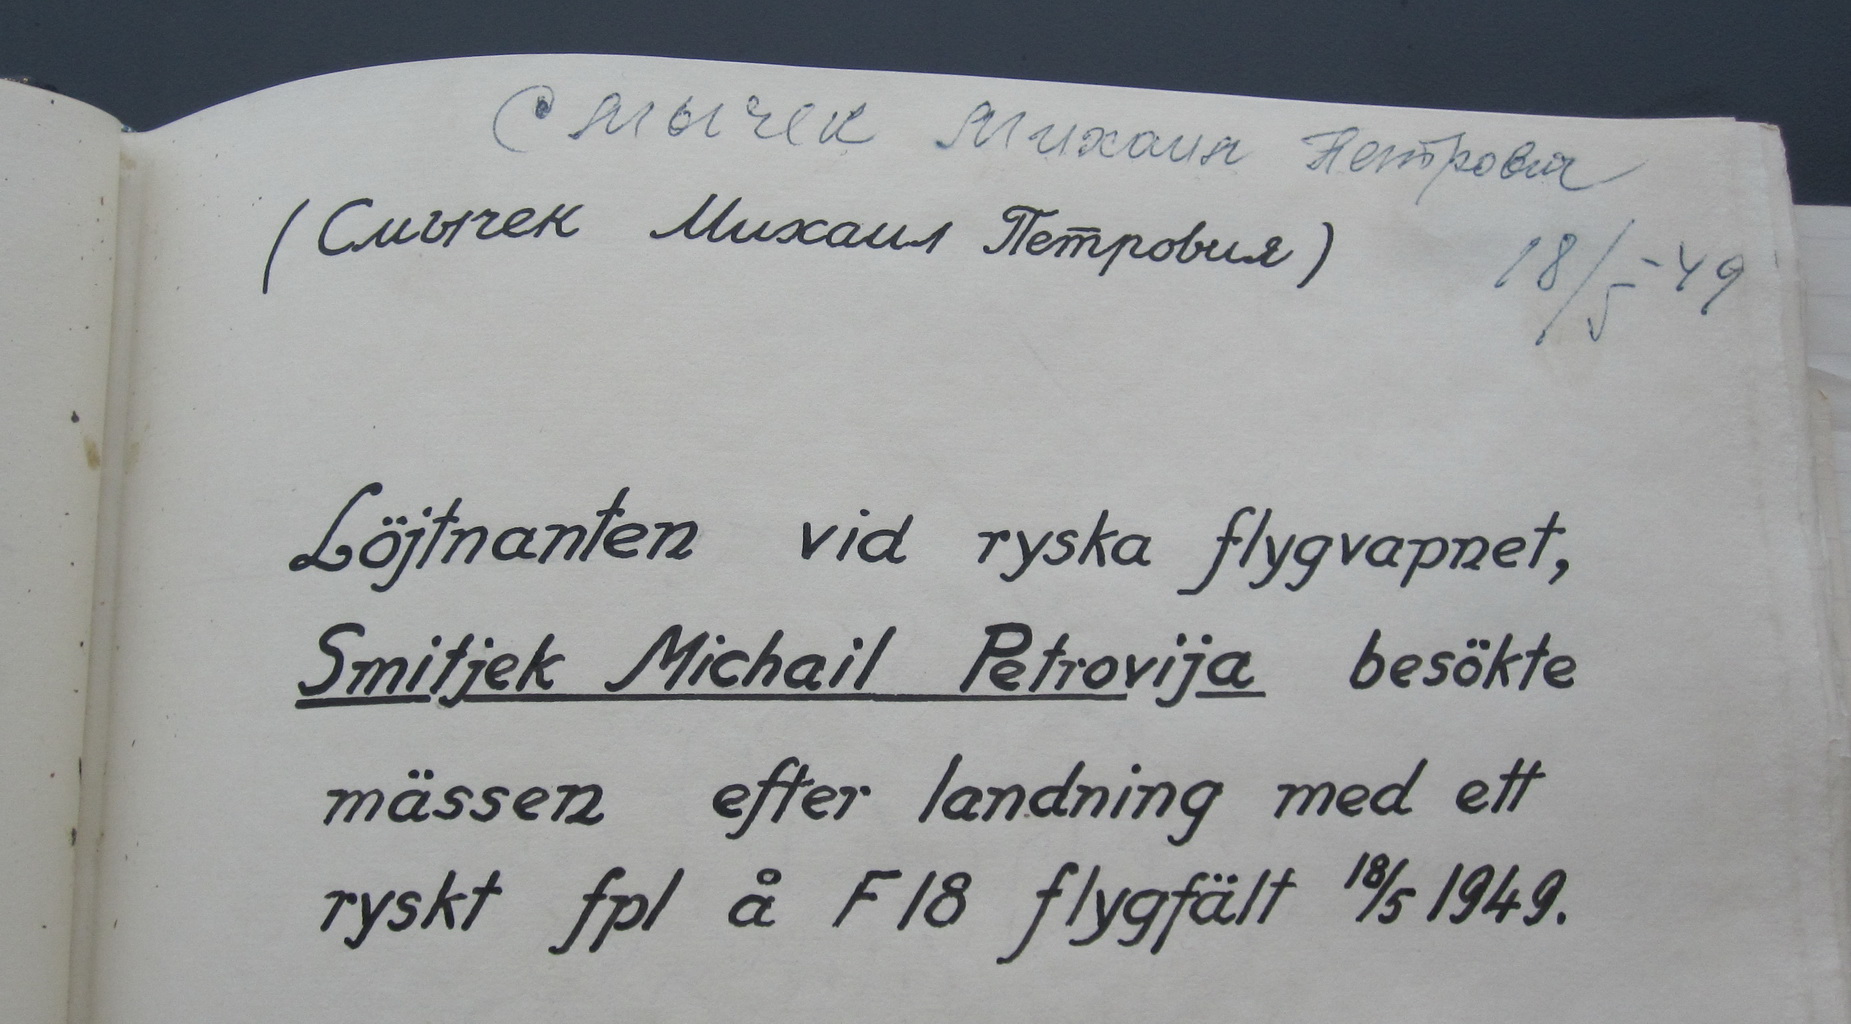 Смычек Михаил Петрович
(Смычек Михаил Петровия)
18/5-49
Löjtnanten vid ryska flygvapnet,
Smitjek Michail Petrovija besökte
mässen efter landning med ett
ryskt fpl å F18 flygfält 18/5 1949.